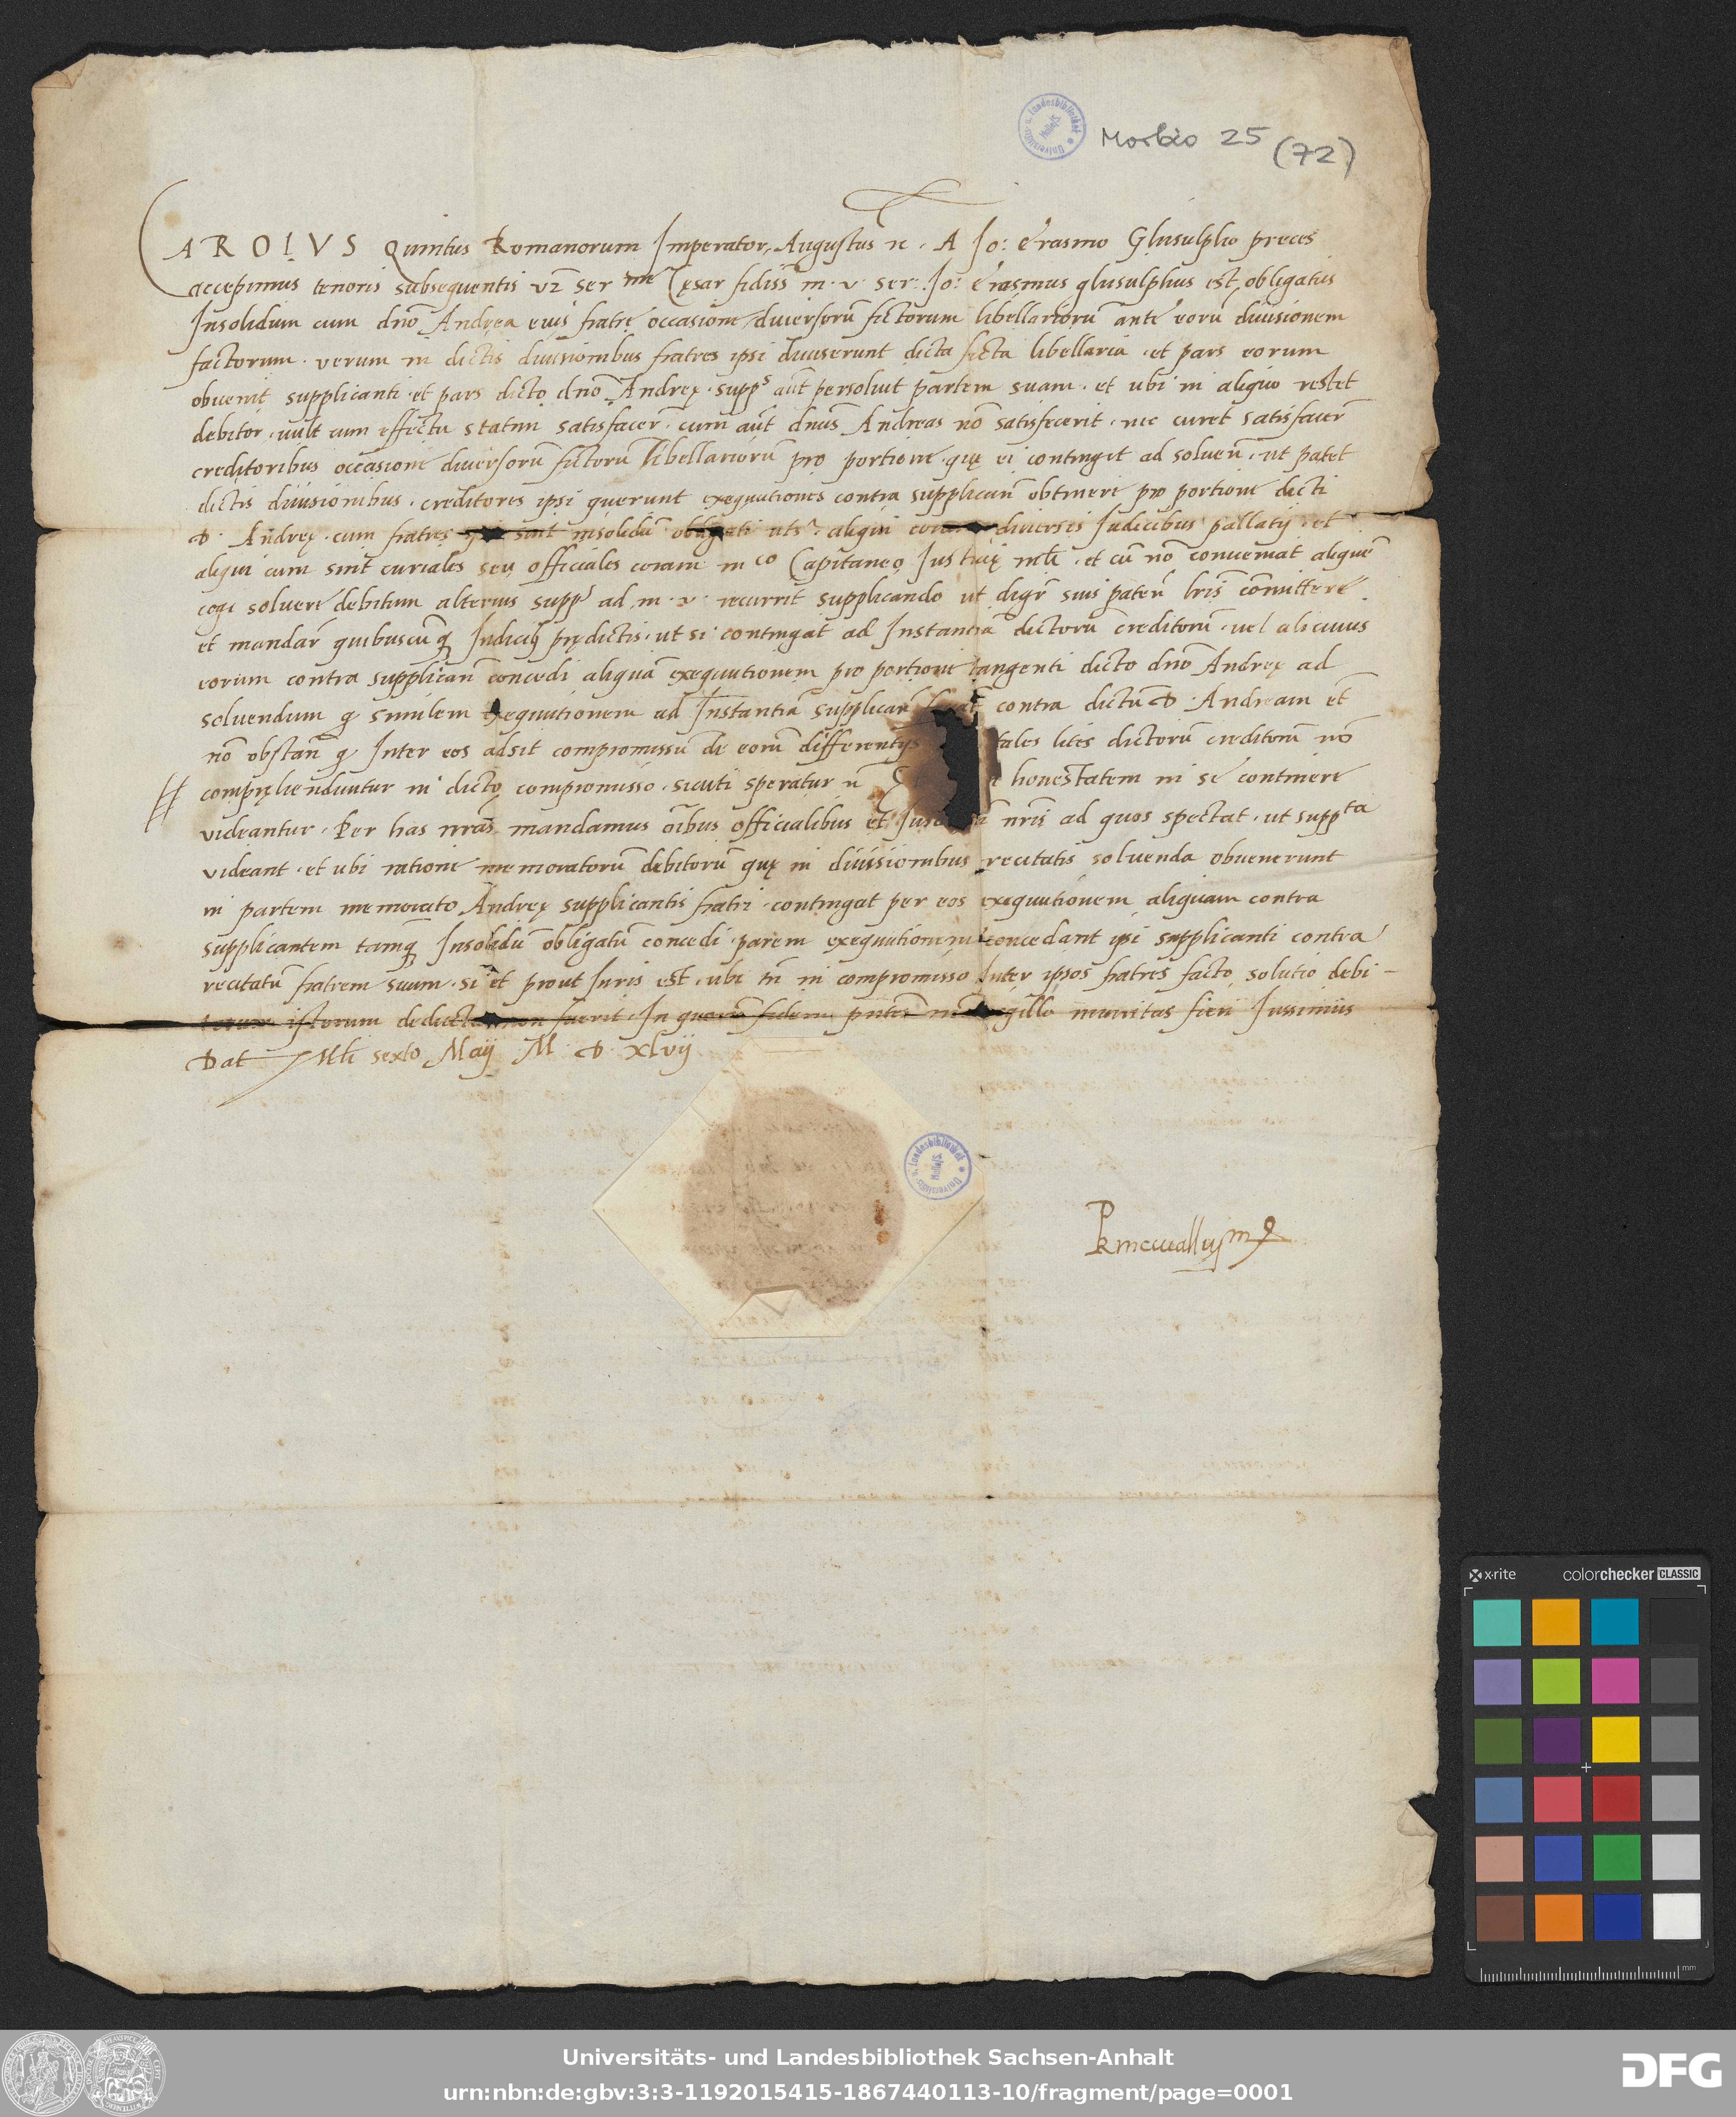 Morbio 25 (72)
CAROLVS Quintus Romanorum Imperator, Augustus &c. A Jo: Erasmo Ghisulpho preces
accepimus tenoris subsequentis vz Ser me Cęsar fidiss m. v. ser: Jo: Erasmus ghisulphus est obligatus
Insolidum cum dno Andrea eius fratre occasione diversorũ fictorum libellariorũ ante eorũ divisionem
factorum. verum in dictis divisionibus fratres ipsi diviserunt dicta ficta libellaria. et pars eorum
obvenit supplicanti. et pars dicto dno Andreę. supps aũt persolvit partem suam. et ubi in aliquo restet
debitor. vult cum effectu statim satisfacer̃. cum aũt dnus Andreas nõ satisfecerit. nec curet satisfacer̃
creditoribus occasione diversorũ fictorũ libellariorũ pro portione quę ei contingit ad solvenñ. ut patet
dictis divisionibus. creditores ipsi querunt exequutiones contra supplicanñ obtinere pro portione dicti
D. Andreę. cum fratres sint insolidũ obligati uts. aliqui coram diversis Judicibus pallatij et
aliqui cum sint curiales seu officiales coram mco Capitaneo Justitię mli. et cũ nõ conveniat aliquẽ
cogi solvere debitum alterius supps ad m. v. recurrit supplicando ut digr̃ suis patenñ lris committere
et mandar̃ quibuscũq Judicibs prędictis. ut si contingat ad Instantiã dictorũ creditorũ. vel alicuius
eorum contra supplicanñ concedi aliquã exequutionem pro portione tangenti dicto dno Andreę ad
solvendum q similem exequutionem ad Instantiã supplican contra dictũ D. Andream et
nõ obstanñ q Inter eos adsit compromissũ de eorũ differentijs tales lites dictorũ creditorũ nõ
compręhenduntur in dicto compromisso. sicuti speratur &c honestatem in se continere
videantur. Per has nr̃as mandamus oĩbus officialibus et nr̃is ad quos spectat. ut suppta
videant. et ubi ratione memoratorũ debitorũ quę in divisionibus recitatis solvenda obvenerunt
in partem memorato Andreę supplicantis fratri. contingat per eos exequutionem aliquam contra
supplicantem tamq Insolidũ obligatũ concedi. parem exequutionem concedant ipsi supplicanti contra
recitatũ fratrem suum. si et prout Juris est. ubi tñ in compromisso Inter ipsos fratres facto solutio debi-
torum istorum deducta non fuerit. In quorũ fidem pñtes sigillo munitas fieri Jussimus
Dat Mli sexto Maij M. D. xlvij
Universitäts- u. Landesbibliothek Halle/S.
Universitäts- u. Landesbibliothek Halle/S.
x-rite colorchecker CLASSIC
mm
Universitäts- und Landesbibliothek Sachsen-Anhalt
urn:nbn:de:gbv:3:3-1192015415-1867440113-10/fragment/page=0001
DFG